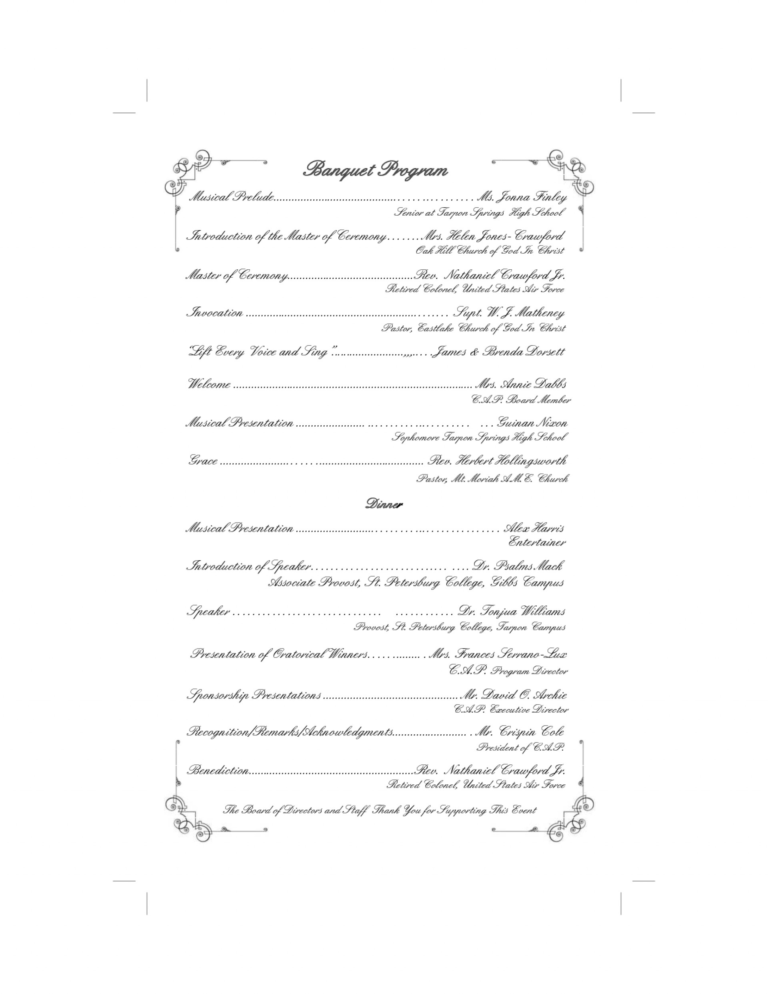 Banquet Program
Musical Prelude..........................................................Ms. Jonna Finley
Senior at Tarpon Springs High School
Introduction of the Master of Ceremony........Mrs. Helen Jones-Crawford
Oak Hill Church of God In Christ
Master of Ceremony..........................................Rev. Nathaniel Crawford Jr.
Retired Colonel, United States Air Force
Invocation ................................................................ Supt. W. J. Matheney
Pastor, Eastlake Church of God In Christ
"Lift Every Voice and Sing".........................,,,.....James & Brenda Dorsett
Welcome ................................................................................ Mrs. Annie Dabbs
C.A.P. Board Member
Musical Presentation ....................... ...................... ...Guinan Nixon
Sophomore Tarpon Springs High School
Grace .................................................................. Rev. Herbert Hollingsworth
Pastor, Mt. Moriah A.M.E. Church
Dinner
Musical Presentation ................................................... Alex Harris
Entertainer
Introduction of Speaker............................ ....Dr. Psalms Mack
Associate Provost, St. Petersburg College, Gibbs Campus
Speaker .............................. ............ Dr. Tonjua Williams
Provost, St. Petersburg College, Tarpon Campus
Presentation of Oratorical Winners............. .Mrs. Frances Serrano-Lux
C.A.P. Program Director
Sponsorship Presentations ..............................................Mr. David O. Archie
C.A.P. Executive Director
Recognition/Remarks/Acknowledgments......................... .Mr. Crispin Cole
President of C.A.P.
Benediction........................................................Rev. Nathaniel Crawford Jr.
Retired Colonel, United States Air Force
The Board of Directors and Staff Thank You for Supporting This Event